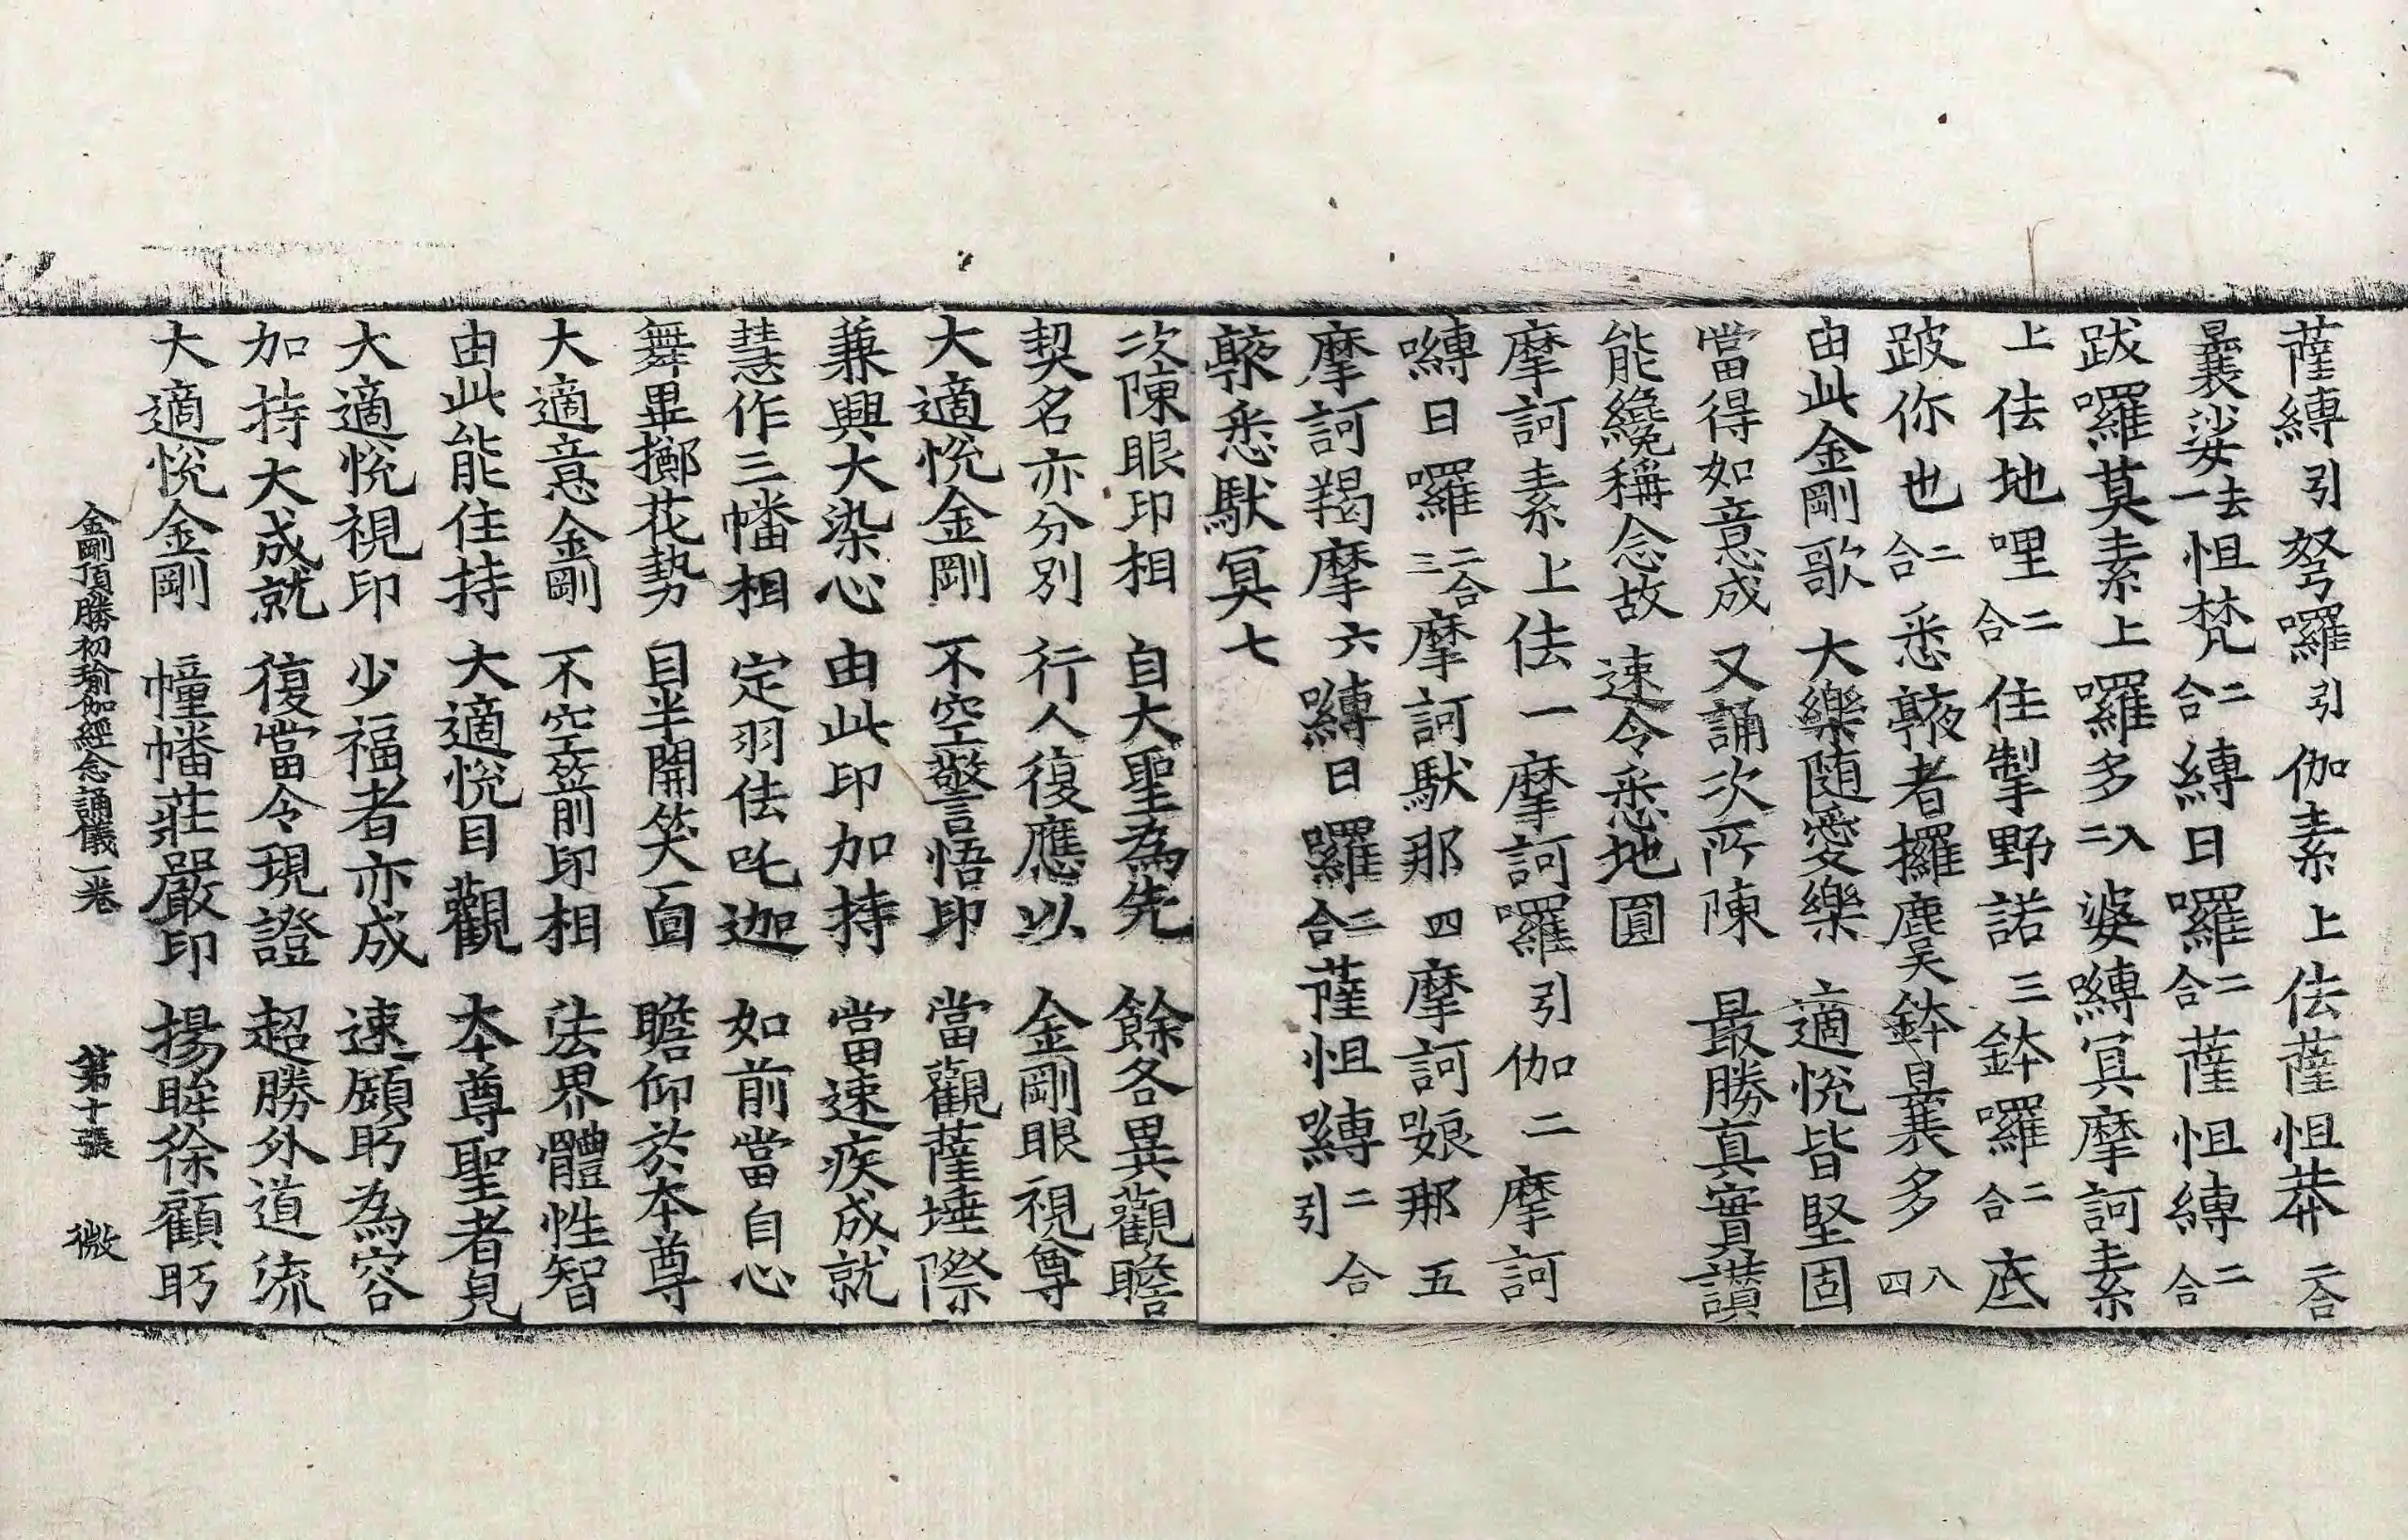 薩縛引弩囉引伽素上佉薩怛莽二合
曩娑去一怛梵二合縛日囉二合薩怛縛二合
跋囉莫素上囉多入二婆嚩冥摩訶素
上佉地哩二合住掣野諾三鉢囉二合底
跛你也二合悉𠆙者攞麌鉢曩多八四
由此金剛歌大樂随愛樂適悅皆堅固
當得如意成又誦次所陳最勝真實讃
能纔稱念故速令悉地圓
摩訶素上佉一摩訶囉引伽二摩訶
嚩日囉二合三摩訶䭾那四摩訶㘓那五
摩訶羯摩六嚩日囉二合薩怛嚩二合引
悉䭾冥七
次陳眼印相自大聖為先餘各異觀瞻
契名亦分別行人復應以金剛眼視尊
大適悅金剛不空警悟印當觀薩埵際
兼興大染心由此印加持當速疾成就
慧作三幡相定羽佉吒迦如前當自心
舞畢擲花勢目半開笑面瞻仰於本尊
大適意金剛不空箭印相法界體性智
由此能住持大適悅目觀本尊聖者見
大適悅視印少福者亦成速顧眄為容
加持大成就復當令現證超勝外道流
大適悅金剛幢幡莊嚴印揚眸徐顧眄
金剛頂勝初瑜伽經念誦儀一卷 第十張 微